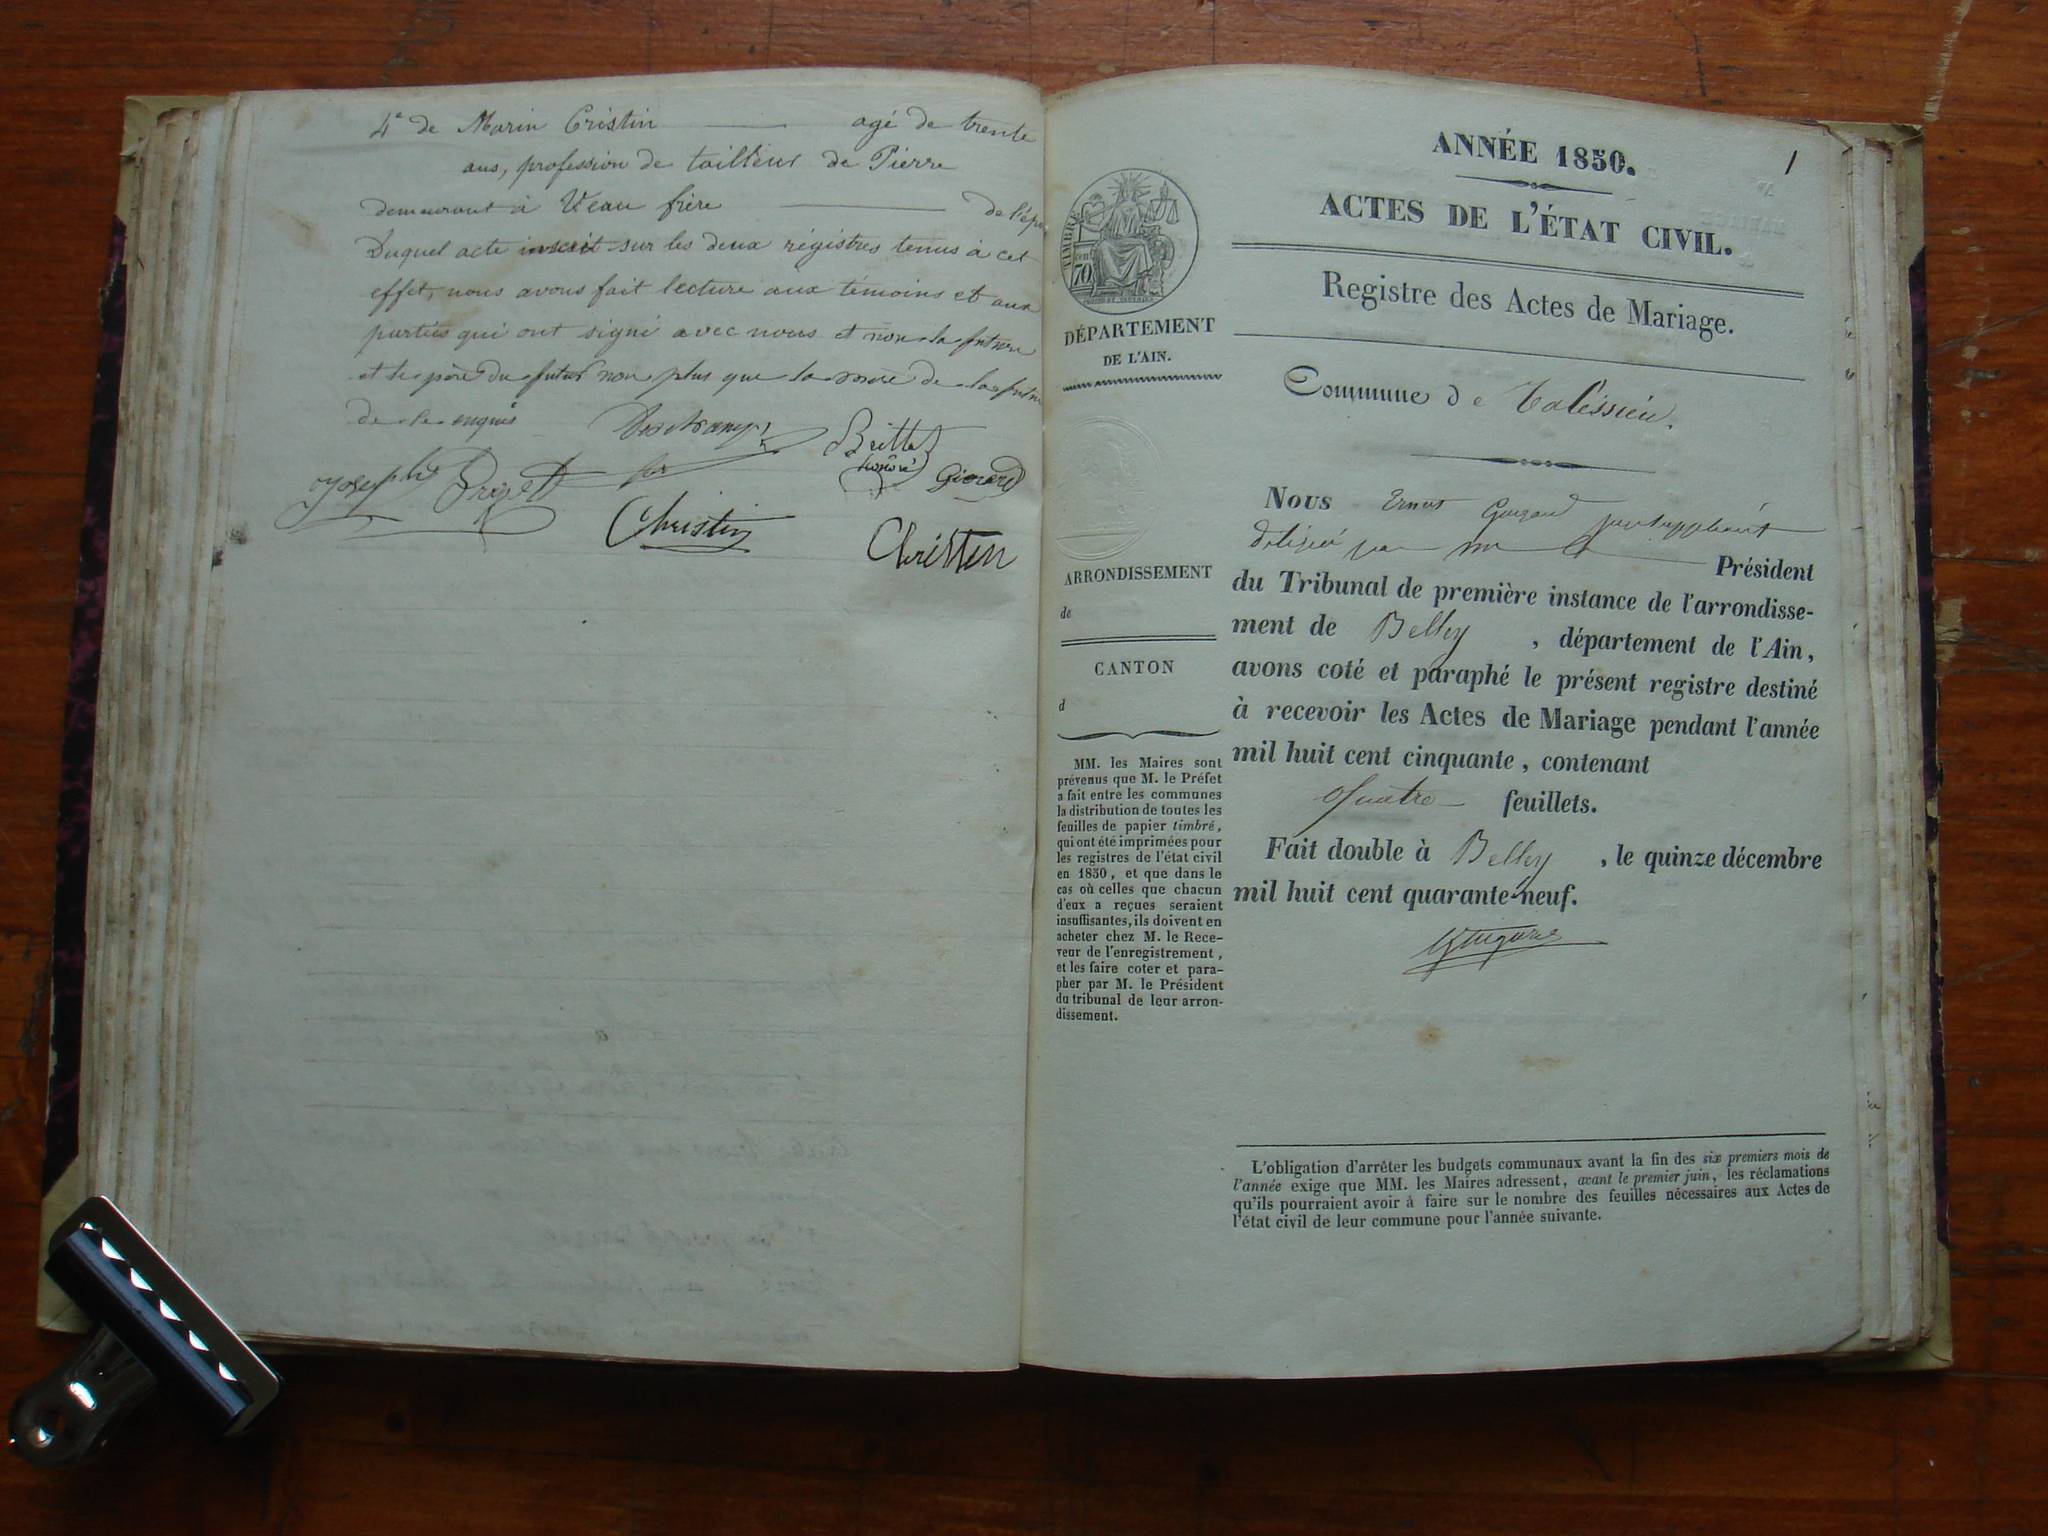 4e de Marin Cristin agé de trente
ans, profession de tailleur de Pierre
demeurant à frère de l'ép
Duquel acte inscrit sur les deux régistres tenus à cet
effet, nous avons fait lecture aux témoins et aux
parties qui ont signé avec nous et non la future
et le père du futur non plus que la mère de la
de ce enquis
Joseph
Brillat
honoré
Girard
Christin
Christin
1
ANNÉE 1850.
ACTES DE L'ÉTAT CIVIL.
Registre des Actes de Mariage.
TIMBRE
70
DÉPARTEMENT
DE L'AIN.
Commune de Talissieu.
Nous Ernest juge suppléant
délégué par Mr le Président
du Tribunal de première instance de l'arrondisse-
ment de Belley, département de l'Ain,
avons coté et paraphé le présent registre destiné
à recevoir les Actes de Mariage pendant l'année
mil huit cent cinquante, contenant
quatre feuillets.
Fait double à Belley, le quinze décembre
mil huit cent quarante-neuf.
ARRONDISSEMENT
de
CANTON
d
MM. les Maires sont
prévenus que M. le Préfet
a fait entre les communes
la distribution de toutes les
feuilles de papier timbré,
qui ont été imprimées pour
les registres de l'état civil
en 1850, et que dans le
cas où celles que chacun
d'eux a reçues seraient
insuffisantes, ils doivent en
acheter chez M. le Rece-
veur de l'enregistrement,
et les faire coter et para-
pher par M. le Président
du tribunal de leur arron-
dissement.
L'obligation d'arrêter les budgets communaux avant la fin des six premiers mois de
l'année exige que MM. les Maires adressent, avant le premier juin, les réclamations
qu'ils pourraient avoir à faire sur le nombre des feuilles nécessaires aux Actes de
l'état civil de leur commune pour l'année suivante.